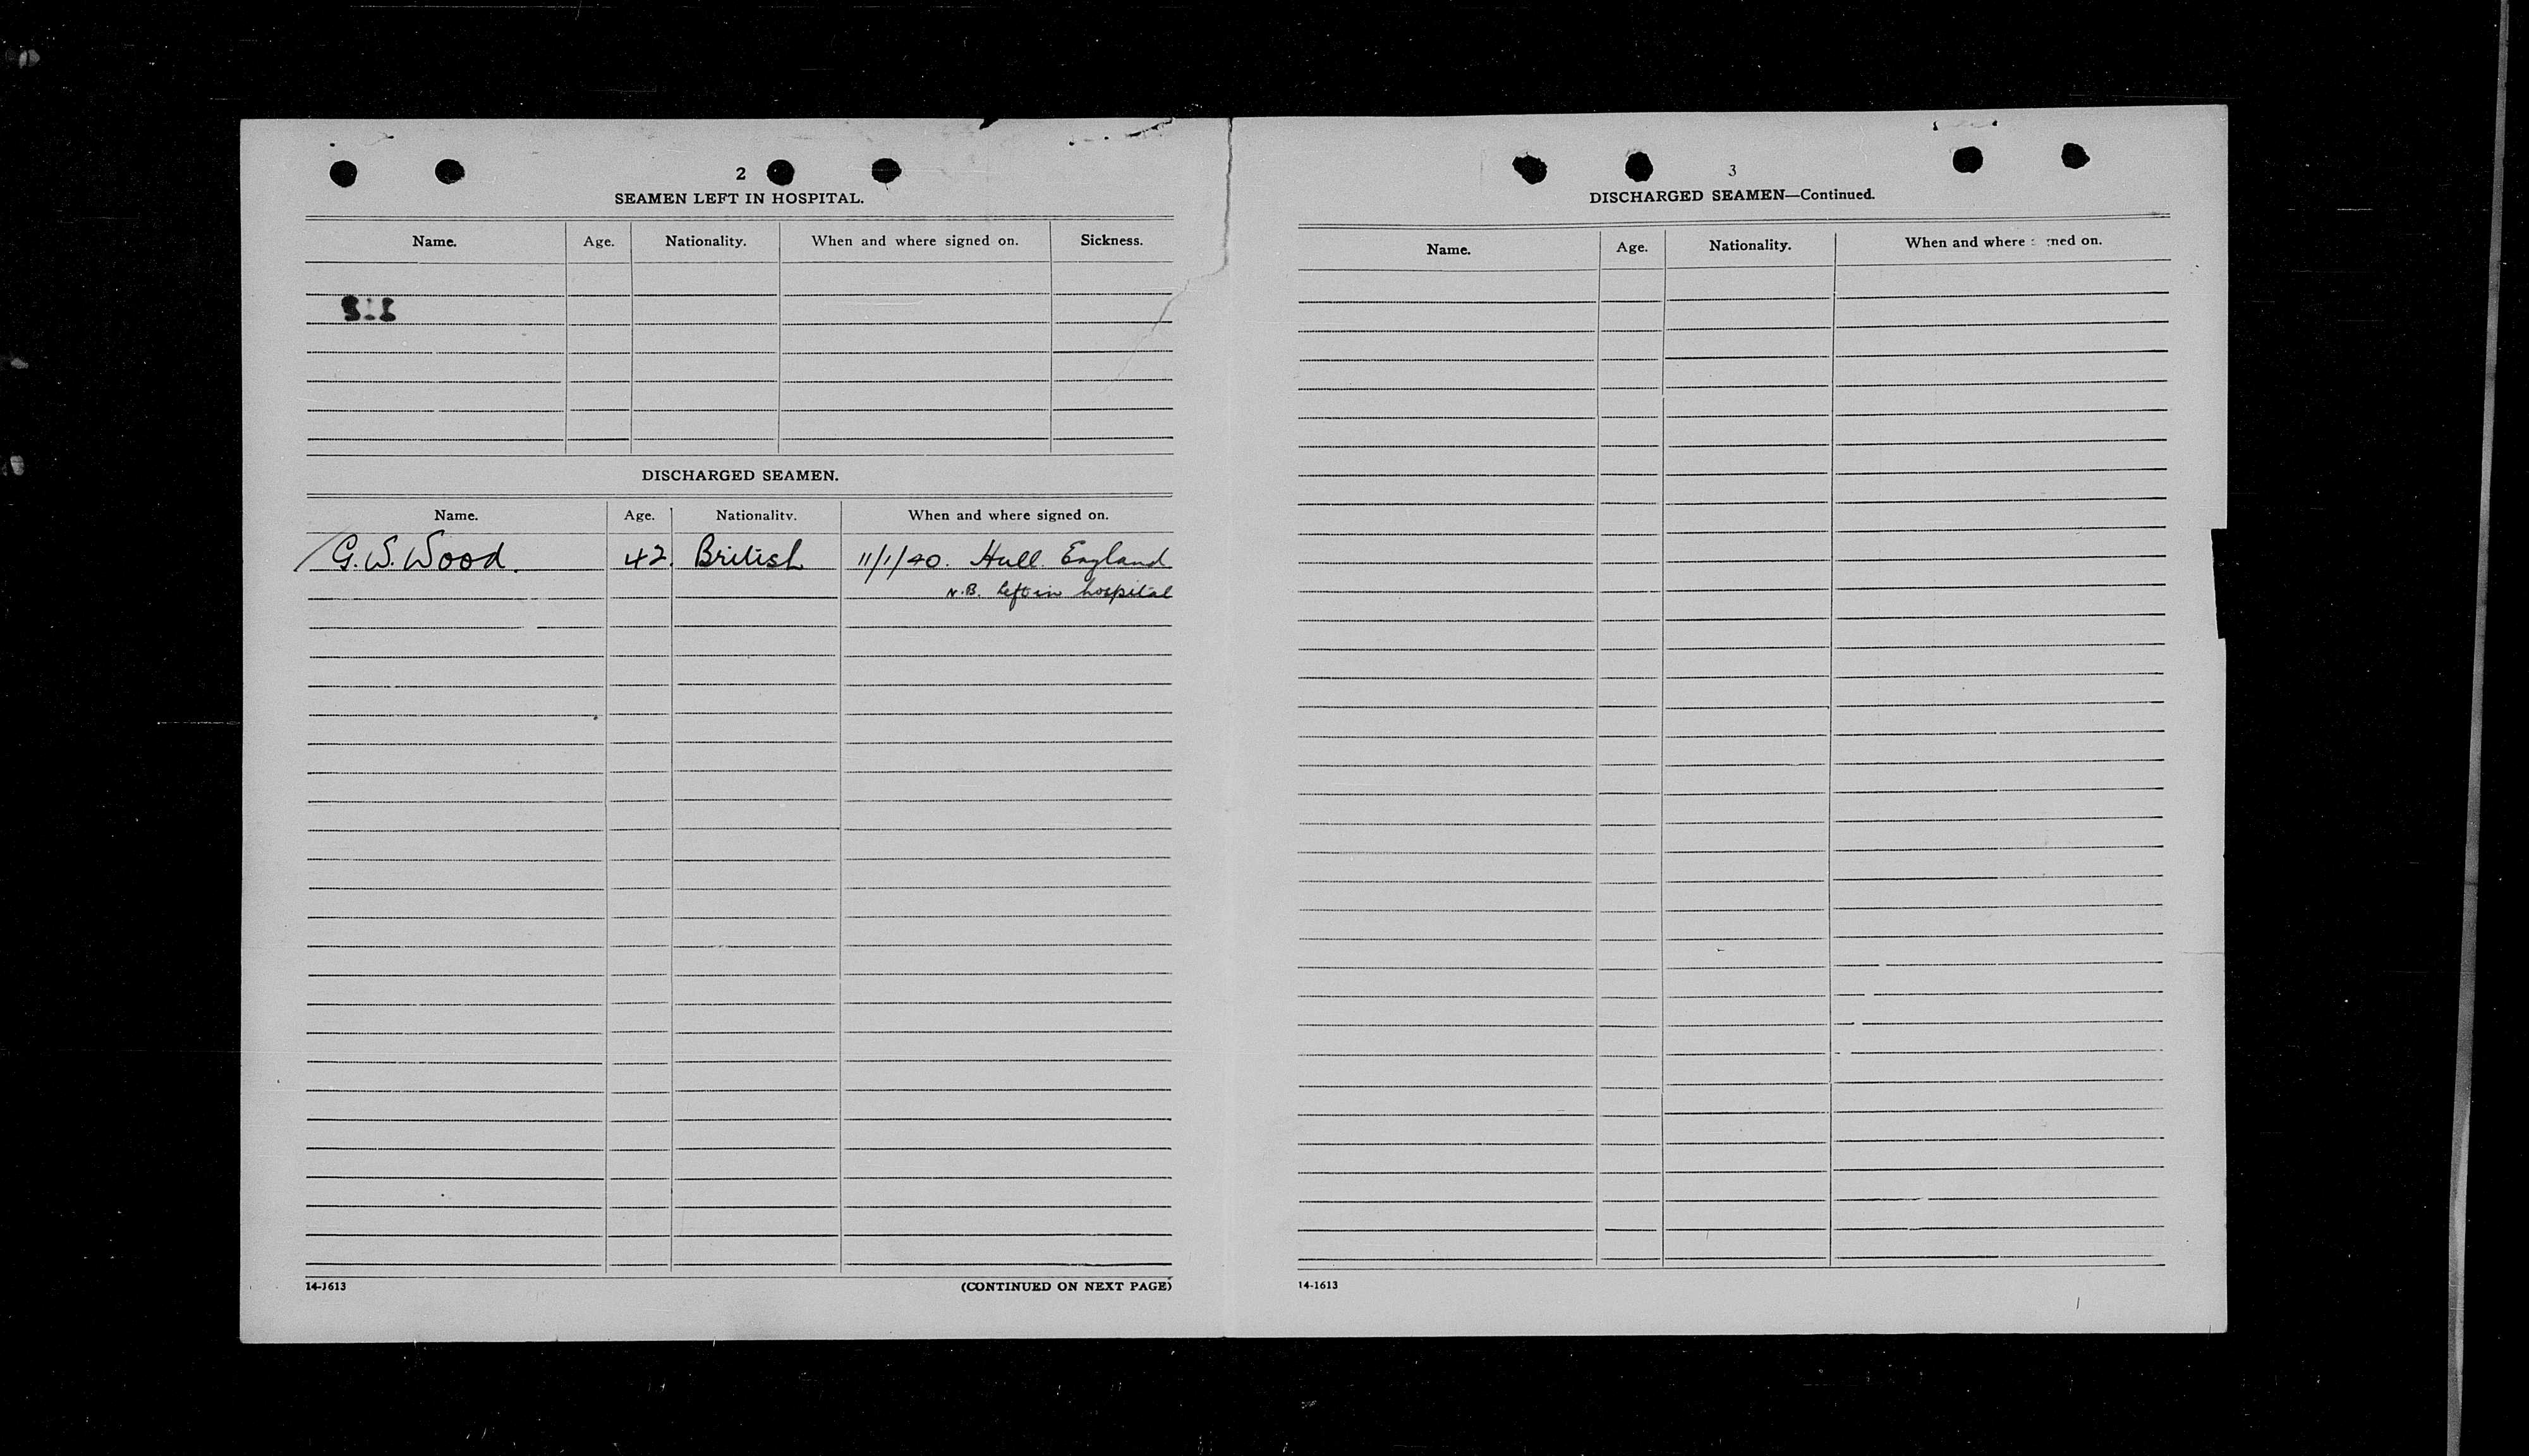 2
SEAMEN LEFT IN HOSPITAL.
Name. Age. Nationality. When and where signed on. Sickness.
DISCHARGED SEAMEN.
Name. Age. Nationality. When and where signed on.
G. W. Wood. 42. British 11/1/40. Hull. England
N.B. left in hospital
14-1613 (CONTINUED ON NEXT PAGE)
3
DISCHARGED SEAMEN—Continued.
Name. Age. Nationality. When and where signed on.
14-1613